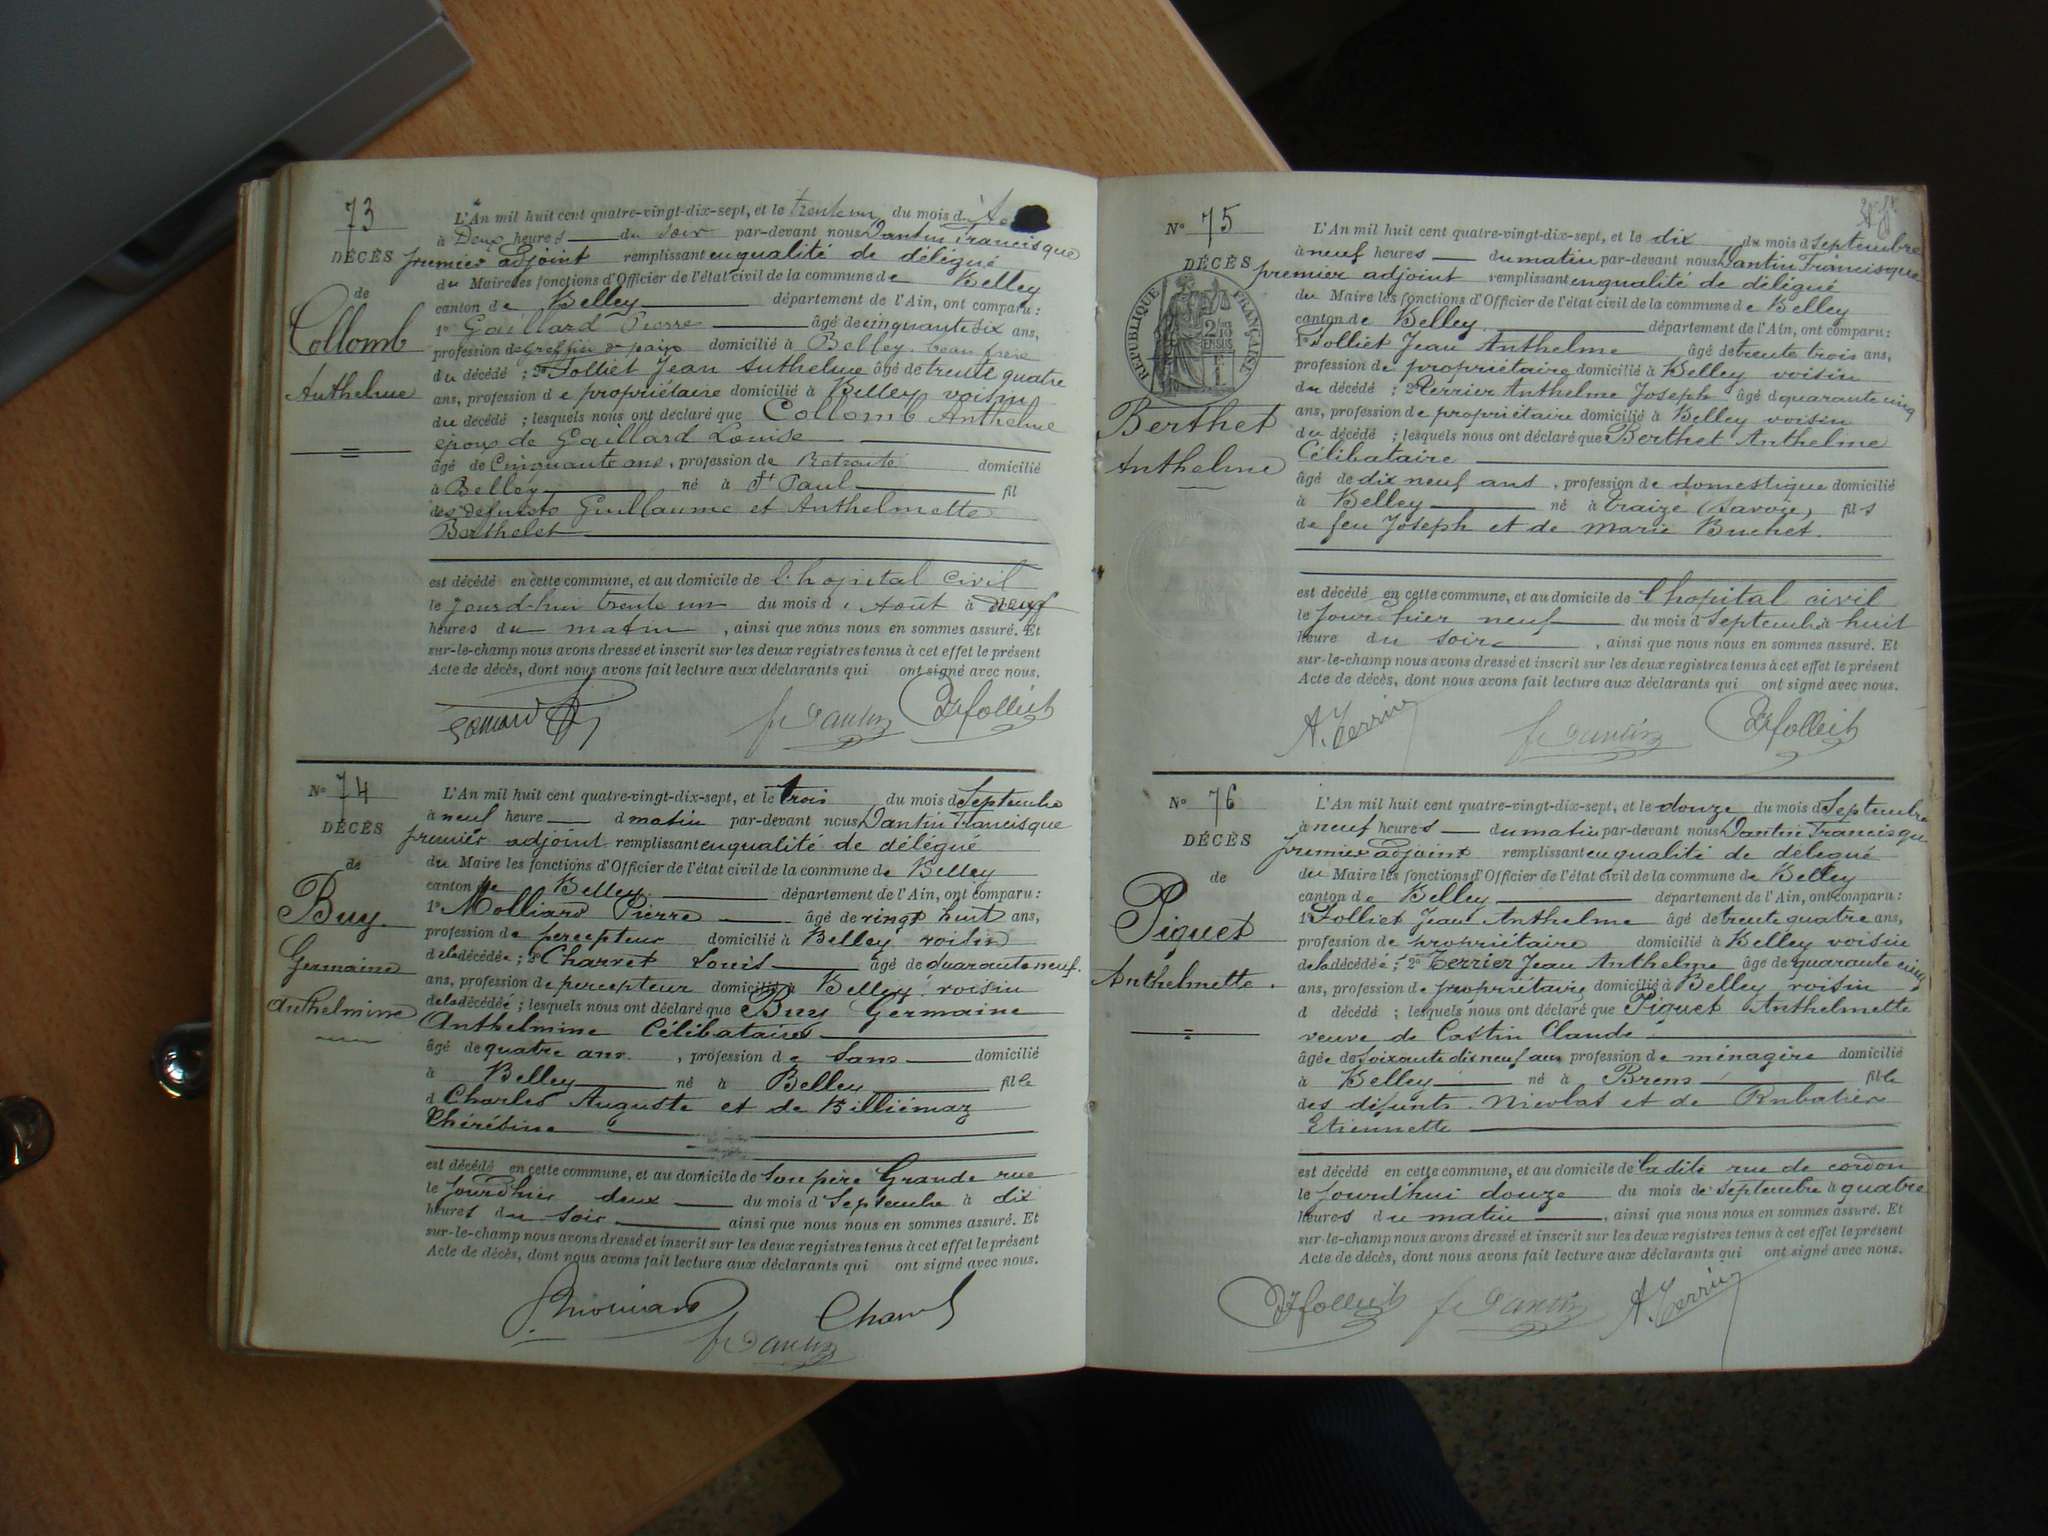 73
DÉCÈS
de
Collomb
Anthelme
L'An mil huit cent quatre-vingt-dix-sept, et le trente un du mois d
à Deux heures du soir par-devant nous Dantin Francisque
premier adjoint remplissant en qualité de délégué
du Maire les fonctions d'Officier de l'état civil de la commune de Belley
canton de Belley département de l'Ain, ont comparu :
1° Gaillard Pierre âgé de cinquante six ans,
profession de greffier de paix domicilié à Belley beau frère
du décédé ; 2° Folliet Jean Anthelme âgé de trente quatre
ans, profession de propriétaire domicilié à Belley voisin
du décédé ; lesquels nous ont déclaré que Collomb Anthelme
époux de Gaillard Louise
âgé de Cinquante ans, profession de Retraité domicilié
à Belley né à St Paul fil
des défunts Guillaume et Anthelmette
Berthelet
est décédé en cette commune, et au domicile de l'hopital civil
le jourd'hui trente un du mois d'Août à neuf
heures du matin, ainsi que nous nous en sommes assuré. Et
sur-le-champ nous avons dressé et inscrit sur les deux registres tenus à cet effet le présent
Acte de décès, dont nous avons fait lecture aux déclarants qui ont signé avec nous.
f. Dantin JAfolliet
N° 74
DÉCÈS
de
Buy
Germaine
Anthelmine
L'An mil huit cent quatre-vingt-dix-sept, et le trois du mois d Septembre
à neuf heure d matin par-devant nous Dantin Francisque
premier adjoint remplissant en qualité de délégué
du Maire les fonctions d'Officier de l'état civil de la commune de Belley
canton de Belley département de l'Ain, ont comparu :
1° Molliard Pierre âgé de vingt huit ans,
profession de percepteur domicilié à Belley voisin
de la décédée ; 2° Charvet Louis âgé de quarante neuf
ans, profession de percepteur domicilié à Belley voisin
de la décédée ; lesquels nous ont déclaré que Buy Germaine
Anthelmine Célibataire
âgé de quatre ans, profession de Sans domicilié
à Belley né à Belley fille
d Charles Auguste et de Billiémaz
Chérébine
est décédé en cette commune, et au domicile de son père Grande rue
le jourd'hier deux du mois d Septembre à dix
heures du soir ainsi que nous nous en sommes assuré. Et
sur-le-champ nous avons dressé et inscrit sur les deux registres tenus à cet effet le présent
Acte de décès, dont nous avons fait lecture aux déclarants qui ont signé avec nous.
f. Dantin
N° 75
DÉCÈS
RÉPUBLIQUE FRANÇAISE
Berthet
Anthelme
L'An mil huit cent quatre-vingt-dix-sept, et le dix du mois d septembre
à neuf heures du matin par-devant nous Dantin Francisque
premier adjoint remplissant en qualité de délégué
du Maire les fonctions d'Officier de l'état civil de la commune de Belley
canton de Belley département de l'Ain, ont comparu :
1° Folliet Jean Anthelme âgé de trente trois ans,
profession de propriétaire domicilié à Belley voisin
du décédé ; 2° Terrier Anthelme Joseph âgé d quarante cinq
ans, profession de propriétaire domicilié à Belley voisin
du décédé ; lesquels nous ont déclaré que Berthet Anthelme
Célibataire
âgé de dix neuf ans, profession de domestique domicilié
à Belley né à traize (Savoie) fils
de feu Joseph et de Marie Buchet.
est décédé en cette commune, et au domicile de l'hopital civil
le jour hier neuf du mois d septembre à huit
heure du soir, ainsi que nous nous en sommes assuré. Et
sur-le-champ nous avons dressé et inscrit sur les deux registres tenus à cet effet le présent
Acte de décès, dont nous avons fait lecture aux déclarants qui ont signé avec nous.
A. Terrier f. Dantin JAfolliet
N° 76
DÉCÈS
de
Piguet
Anthelmette
L'An mil huit cent quatre-vingt-dix-sept, et le douze du mois d Septembre
à neuf heures du matin par-devant nous Dantin Francisque
premier adjoint remplissant en qualité de délégué
du Maire les fonctions d'Officier de l'état civil de la commune de Belley
canton de Belley département de l'Ain, ont comparu :
1° Folliet Jean Anthelme âgé de trente quatre ans,
profession de propriétaire domicilié à Belley voisin
de la décédé ; 2° Terrier Jean Anthelme âge de quarante cinq
ans, profession de propriétaire domicilié à Belley voisin
d décédé ; lesquels nous ont déclaré que Piguet Anthelmette
veuve de Castin Claude
âgée de soixante dix neuf ans profession de ménagère domicilié
à Belley né à Brens fille
des défunts Nicolas et de Rubatier
Etiennette
est décédé en cette commune, et au domicile de ladite rue de cordon
le jourd'hui douze du mois de septembre à quatre
heures du matin, ainsi que nous nous en sommes assuré. Et
sur-le-champ nous avons dressé et inscrit sur les deux registres tenus à cet effet le présent
Acte de décès, dont nous avons fait lecture aux déclarants qui ont signé avec nous.
JAfolliet f. Dantin A. Terrier